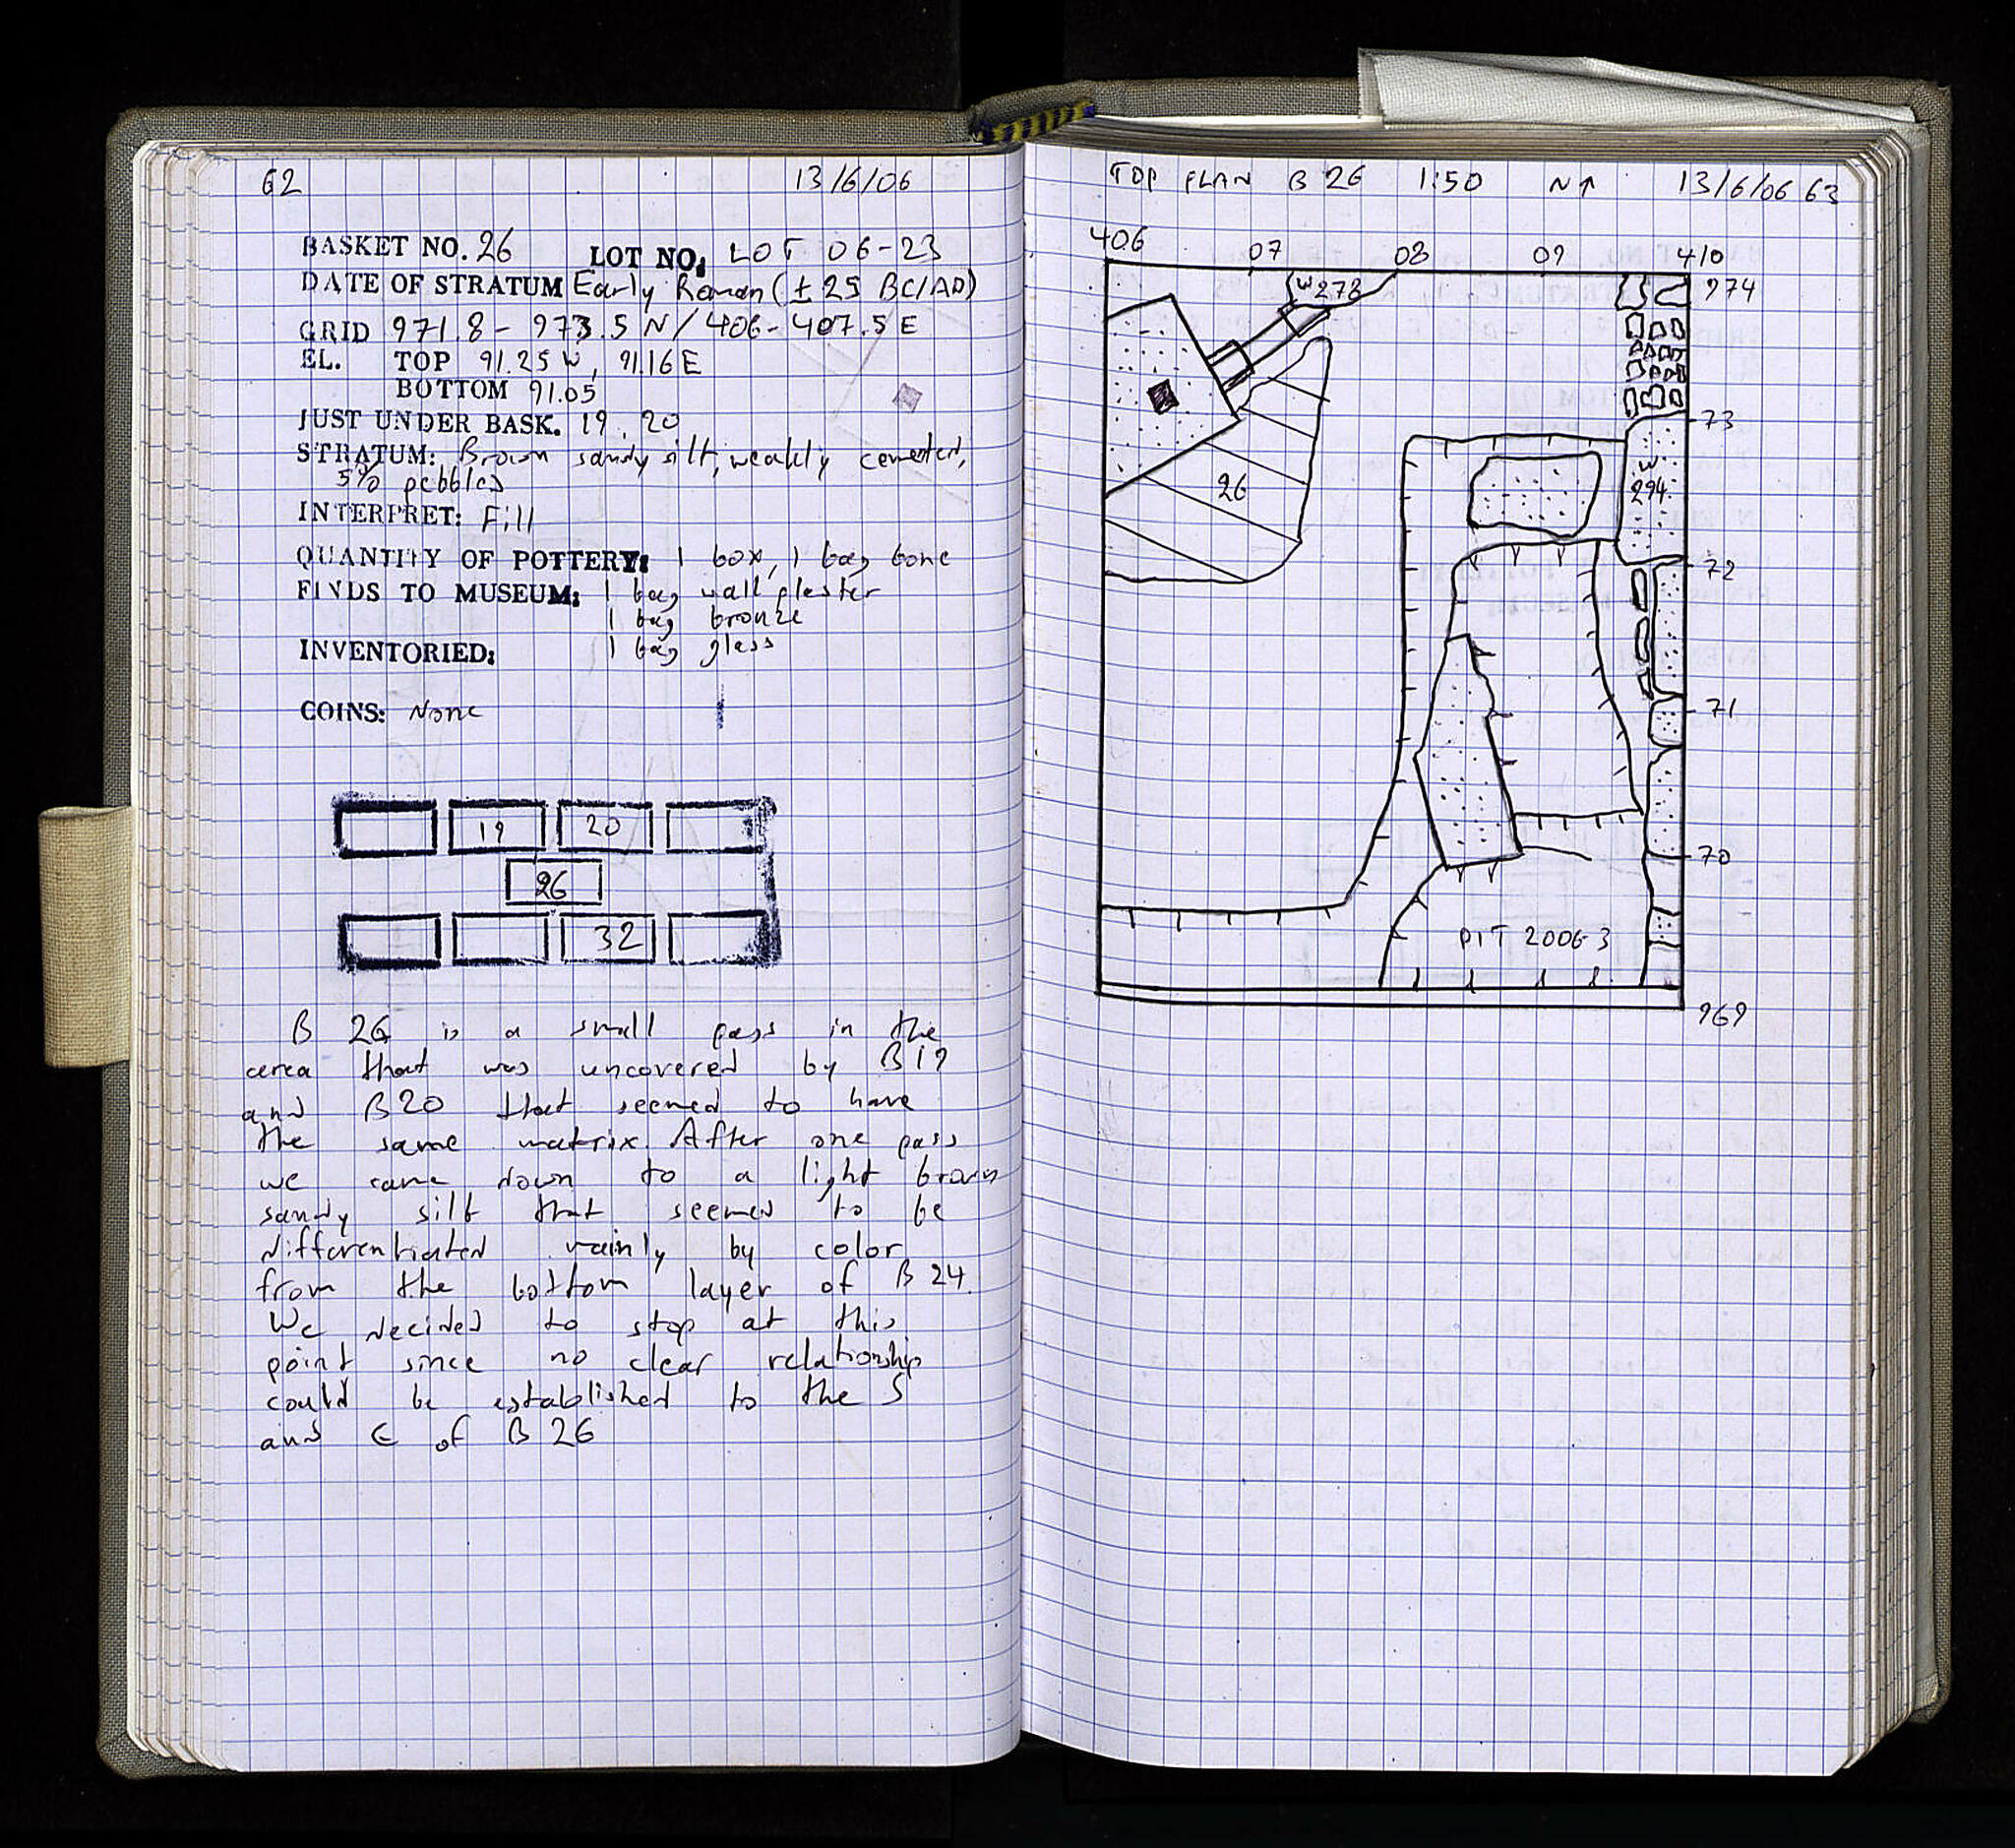 62 13/6/06
BASKET NO. 26 LOT NO: LOT 06-23
DATE OF STRATUM Early Roman (± 25 BC/AD)
GRID 971.8 - 973.5 N / 406 - 407.5 E
EL. TOP 91.25 W, 91.16 E
BOTTOM 91.05
JUST UNDER BASK. 19, 20
STRATUM: Brown sandy silt, weakly cemented,
5% pebbles
INTERPRET: Fill
QUANTITY OF POTTERY: 1 box, 1 bag bone
FINDS TO MUSEUM: 1 bag wall plaster
1 bag bronze
INVENTORIED: 1 bag glass
COINS: None
19 20
26
32
B 26 is a small pass in the
area that was uncovered by B19
and B20 that seemed to have
the same matrix. After one pass
we came down to a light brown
sandy silt that seemed to be
differentiated mainly by color
from the bottom layer of B 24.
We decided to stop at this
point since no clear relationship
could be established to the S
and E of B 26
TOP PLAN B 26 1:50 N↑ 13/6/06 63
406 07 08 09 410
W278 974
73
W
294
26
72
71
70
PIT 2006-3
969